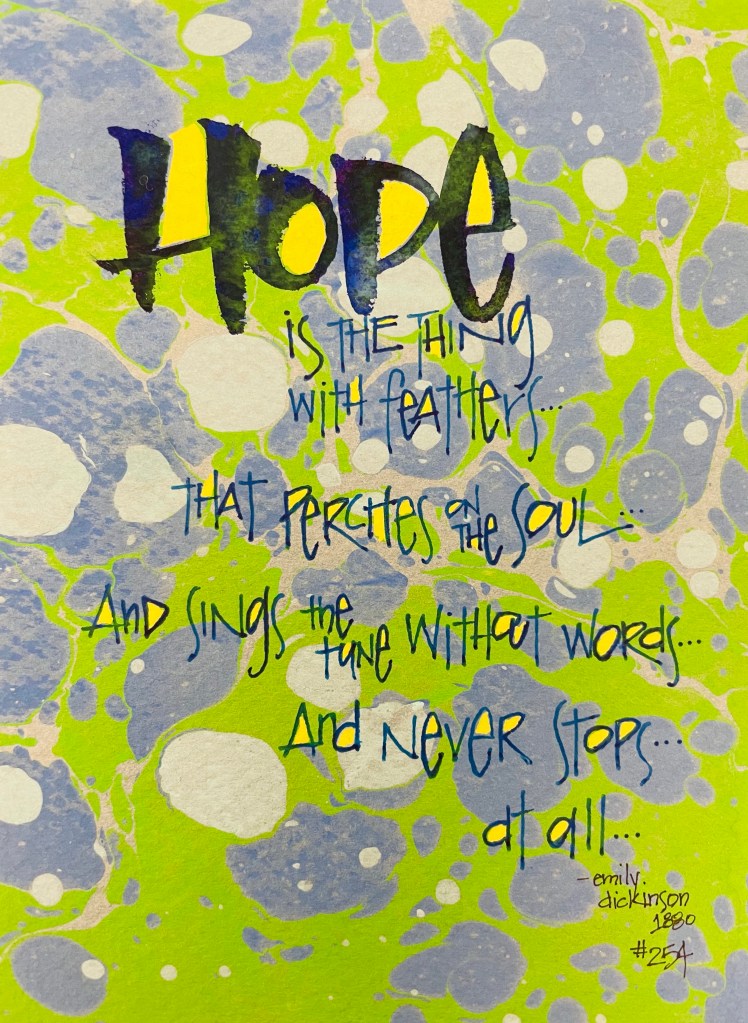 Hope
is THE THING
with feATHers...
THAT PERCHES ON THE SOUL...
And SINGS the tune WITHOUT WORDS...
And NEVER STOPS...
at all...
-emily.
dickinson
1880
#254